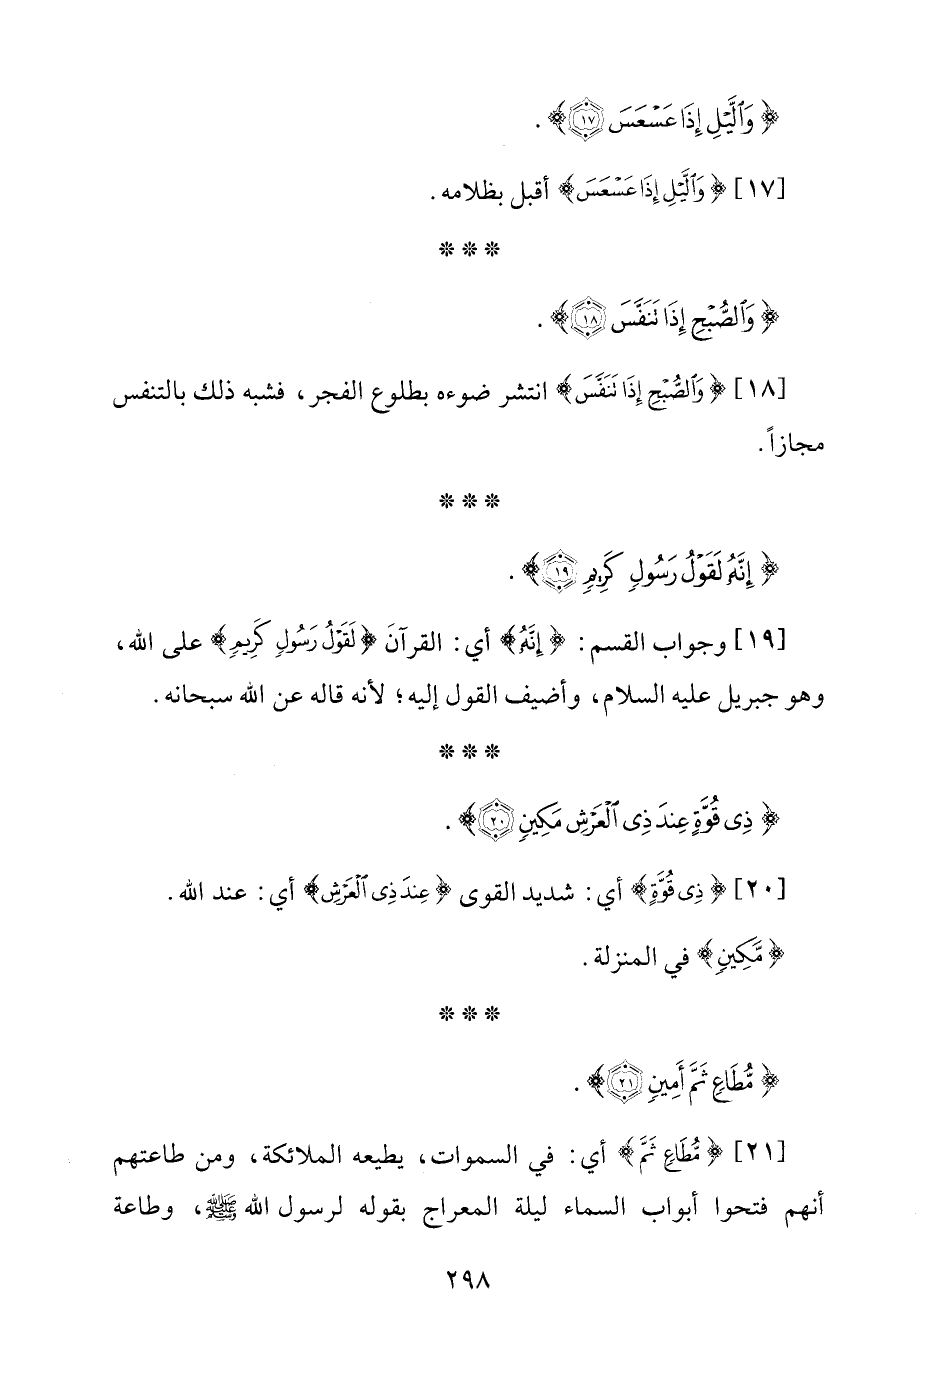 ﴿ وَٱلَّيْلِ إِذَا عَسْعَسَ ١٧﴾ .
[١٧] ﴿ وَٱلَّيْلِ إِذَا عَسْعَسَ﴾ أقبل بظلامه.
❊ ❊ ❊
﴿ وَٱلصُّبْحِ إِذَا تَنَفَّسَ ١٨﴾ .
[١٨] ﴿ وَٱلصُّبْحِ إِذَا تَنَفَّسَ﴾ انتشر ضوءه بطلوع الفجر، فشبه ذلك بالتنفس
مجازاً.
❊ ❊ ❊
﴿ إِنَّهُۥ لَقَوْلُ رَسُولٍ كَرِيمٍ ١٩﴾ .
[١٩] وجواب القسم: ﴿ إِنَّهُۥ﴾ أي: القرآنَ ﴿لَقَوْلُ رَسُولٍ كَرِيمٍ﴾ على الله،
وهو جبريل عليه السلام، وأضيف القول إليه؛ لأنه قاله عن الله سبحانه.
❊ ❊ ❊
﴿ ذِى قُوَّةٍ عِندَ ذِى ٱلْعَرْشِ مَكِينٍ ٢٠﴾ .
[٢٠] ﴿ ذِى قُوَّةٍ﴾ أي: شديد القوى ﴿عِندَ ذِى ٱلْعَرْشِ﴾ أي: عند الله.
﴿ مَّكِينٍ﴾ في المنزلة.
❊ ❊ ❊
﴿ مُّطَاعٍ ثَمَّ أَمِينٍ ٢١﴾ .
[٢١] ﴿ مُّطَاعٍ ثَمَّ﴾ أي: في السموات، يطيعه الملائكة، ومن طاعتهم
أنهم فتحوا أبواب السماء ليلة المعراج بقوله لرسول الله ﷺ، وطاعة
٢٩٨